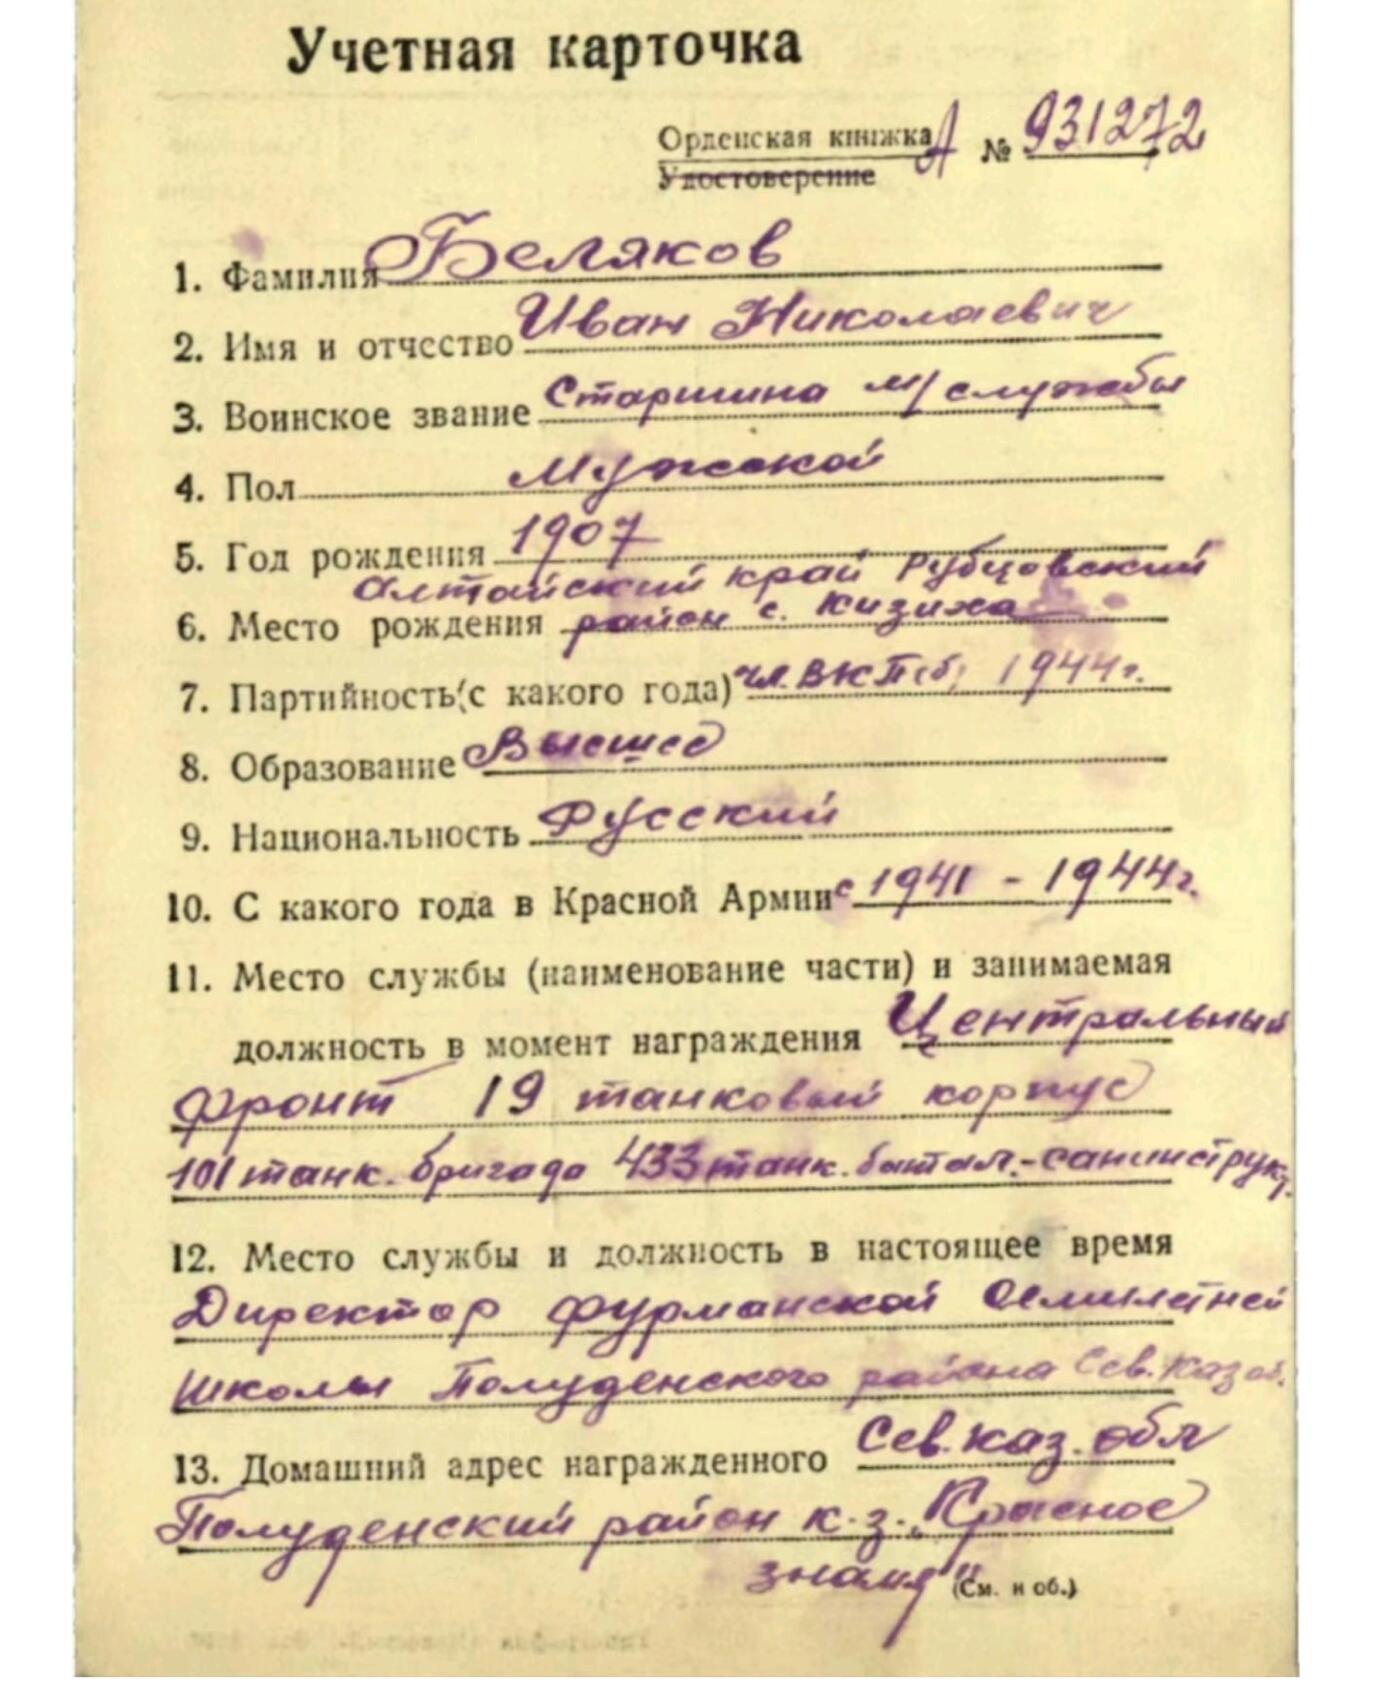 Учетная карточка
Орденская книжка А № 931272
Удостоверение
1. Фамилия Беляков
2. Имя и отчество Иван Николаевич
3. Воинское звание Старшина м/службы
4. Пол Мужской
5. Год рождения 1907
Алтайский край Рубцовский
6. Место рождения район с. Кизиха
7. Партийность (с какого года) чл. ВКП(б) 1944 г.
8. Образование Высшее
9. Национальность Русский
10. С какого года в Красной Армии с 1941 - 1944 г.
11. Место службы (наименование части) и занимаемая
должность в момент награждения Центральный
фронт 19 танковый корпус
101 танк. бригада 433 танк. батал. - санинструкт.
12. Место службы и должность в настоящее время
Директор Фурманской Семилетней
школы Полуденского района Сев. Каз об.
13. Домашний адрес награжденного Сев. каз. обл
Полуденский район к-з. „Красное
знамя"
(См. н об.)